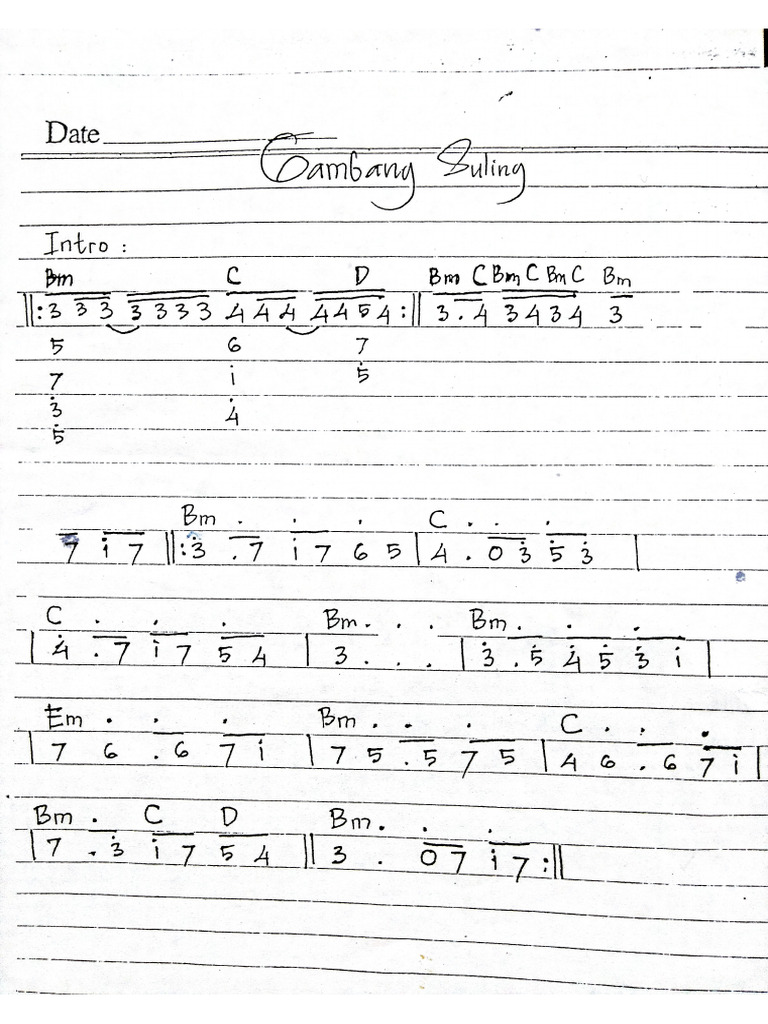 Date
Gambang Suling
Intro :
Bm C D Bm C Bm C Bm C Bm
||: 3 3 3 3 3 3 3 4 4 4 4 4 5 4 :|| 3 . 4 3 4 3 4 3
5 6 7
7 i 5̇
3̇ 4̇
5̇
Bm . . . C . . .
7 i 7 ||: 3̇ . 7 i 7 6 5 | 4 . 0 3̇ 5̇ 3̇ |
C . . . Bm . . . Bm . . .
| 4̇ . 7 i 7 5 4 | 3 . . . | 3̇ . 5̇ 4̇ 5̇ 3̇ i |
Em . . . Bm . . . C . . .
| 7 6 . 6 7 i | 7 5 . 5 7 5 | 4 6 . 6 7 i |
Bm . C D Bm . . .
| 7 . 3̇ i 7 5 4 || 3 . 0 7 i 7 :||